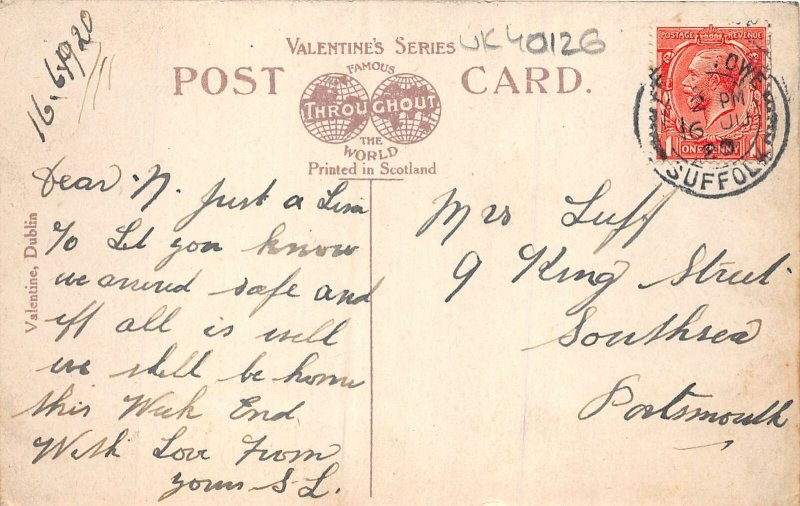 16.6.1920
VALENTINE'S SERIES
UK40126
POST CARD.
FAMOUS
THROUGHOUT
THE
WORLD
Printed in Scotland
Valentine, Dublin
POSTAGE REVENUE
ONE PENNY
PM
SUFFOLK
Dear N. Just a Line
to Let you know
we arrived safe and
iff all is well
we shall be home
this Week End
With Love From
yours S L.
Mrs Luff
9 King Street
Southsea
Portsmouth